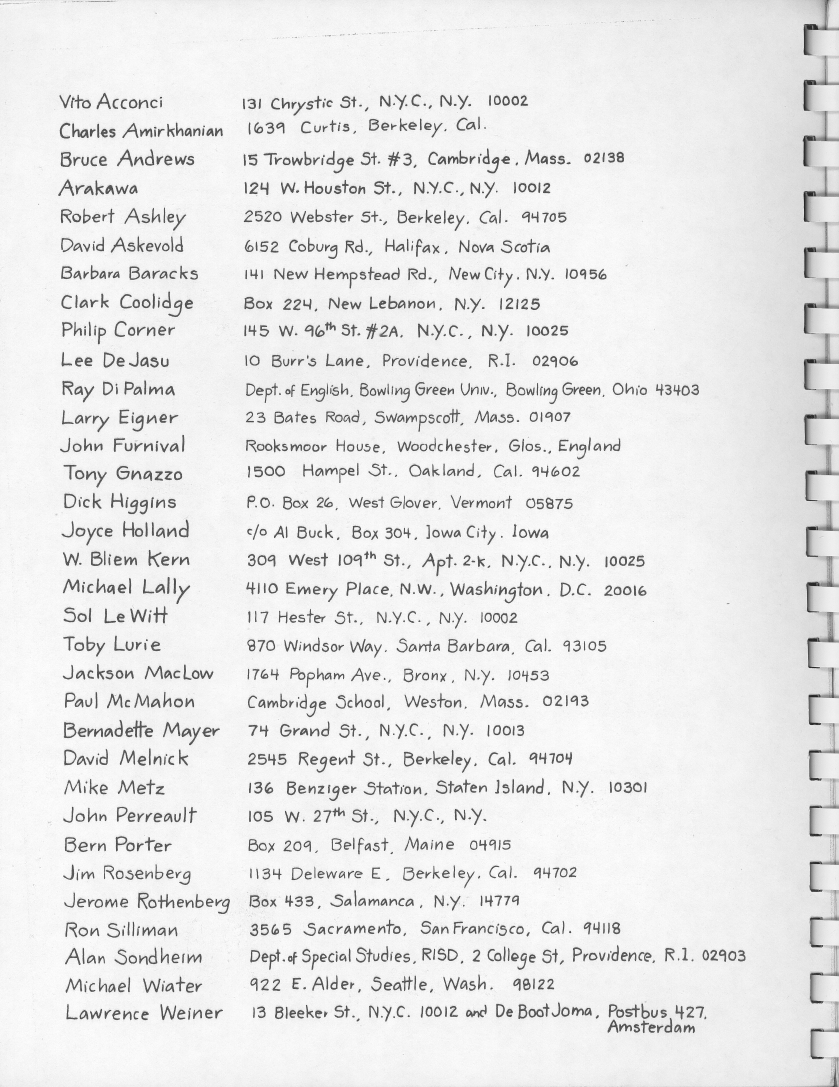 Vito Acconci 131 Chrystic St., N.Y.C., N.Y. 10002
Charles Amirkhanian 1639 Curtis, Berkeley, Cal.
Bruce Andrews 15 Trowbridge St. #3, Cambridge, Mass. 02138
Arakawa 124 W. Houston St., N.Y.C., N.Y. 10012
Robert Ashley 2520 Webster St., Berkeley, Cal. 94705
David Askevold 6152 Coburg Rd., Halifax, Nova Scotia
Barbara Baracks 141 New Hempstead Rd., New City, N.Y. 10956
Clark Coolidge Box 224, New Lebanon, N.Y. 12125
Philip Corner 145 W. 96th St. #2A, N.Y.C., N.Y. 10025
Lee DeJasu 10 Burr's Lane, Providence, R.I. 02906
Ray Di Palma Dept. of English, Bowling Green Univ., Bowling Green, Ohio 43403
Larry Eigner 23 Bates Road, Swampscott, Mass. 01907
John Furnival Rooksmoor House, Woodchester, Glos., England
Tony Gnazzo 1500 Hampel St., Oakland, Cal. 94602
Dick Higgins P.O. Box 26, West Glover, Vermont 05875
Joyce Holland c/o Al Buck, Box 304, Iowa City, Iowa
W. Bliem Kern 309 West 109th St., Apt. 2-K, N.Y.C., N.Y. 10025
Michael Lally 4110 Emery Place, N.W., Washington, D.C. 20016
Sol LeWitt 117 Hester St., N.Y.C., N.Y. 10002
Toby Lurie 870 Windsor Way, Santa Barbara, Cal. 93105
Jackson MacLow 1764 Popham Ave., Bronx, N.Y. 10453
Paul McMahon Cambridge School, Weston, Mass. 02193
Bernadette Mayer 74 Grand St., N.Y.C., N.Y. 10013
David Melnick 2545 Regent St., Berkeley, Cal. 94704
Mike Metz 136 Benziger Station, Staten Island, N.Y. 10301
John Perreault 105 W. 27th St., N.Y.C., N.Y.
Bern Porter Box 209, Belfast, Maine 04915
Jim Rosenberg 1134 Deleware E, Berkeley, Cal. 94702
Jerome Rothenberg Box 433, Salamanca, N.Y. 14779
Ron Silliman 3565 Sacramento, San Francisco, Cal. 94118
Alan Sondheim Dept. of Special Studies, RISD, 2 College St, Providence, R.I. 02903
Michael Wiater 922 E. Alder, Seattle, Wash. 98122
Lawrence Weiner 13 Bleeker St., N.Y.C. 10012 and De Boot Joma, Postbus 427,
Amsterdam